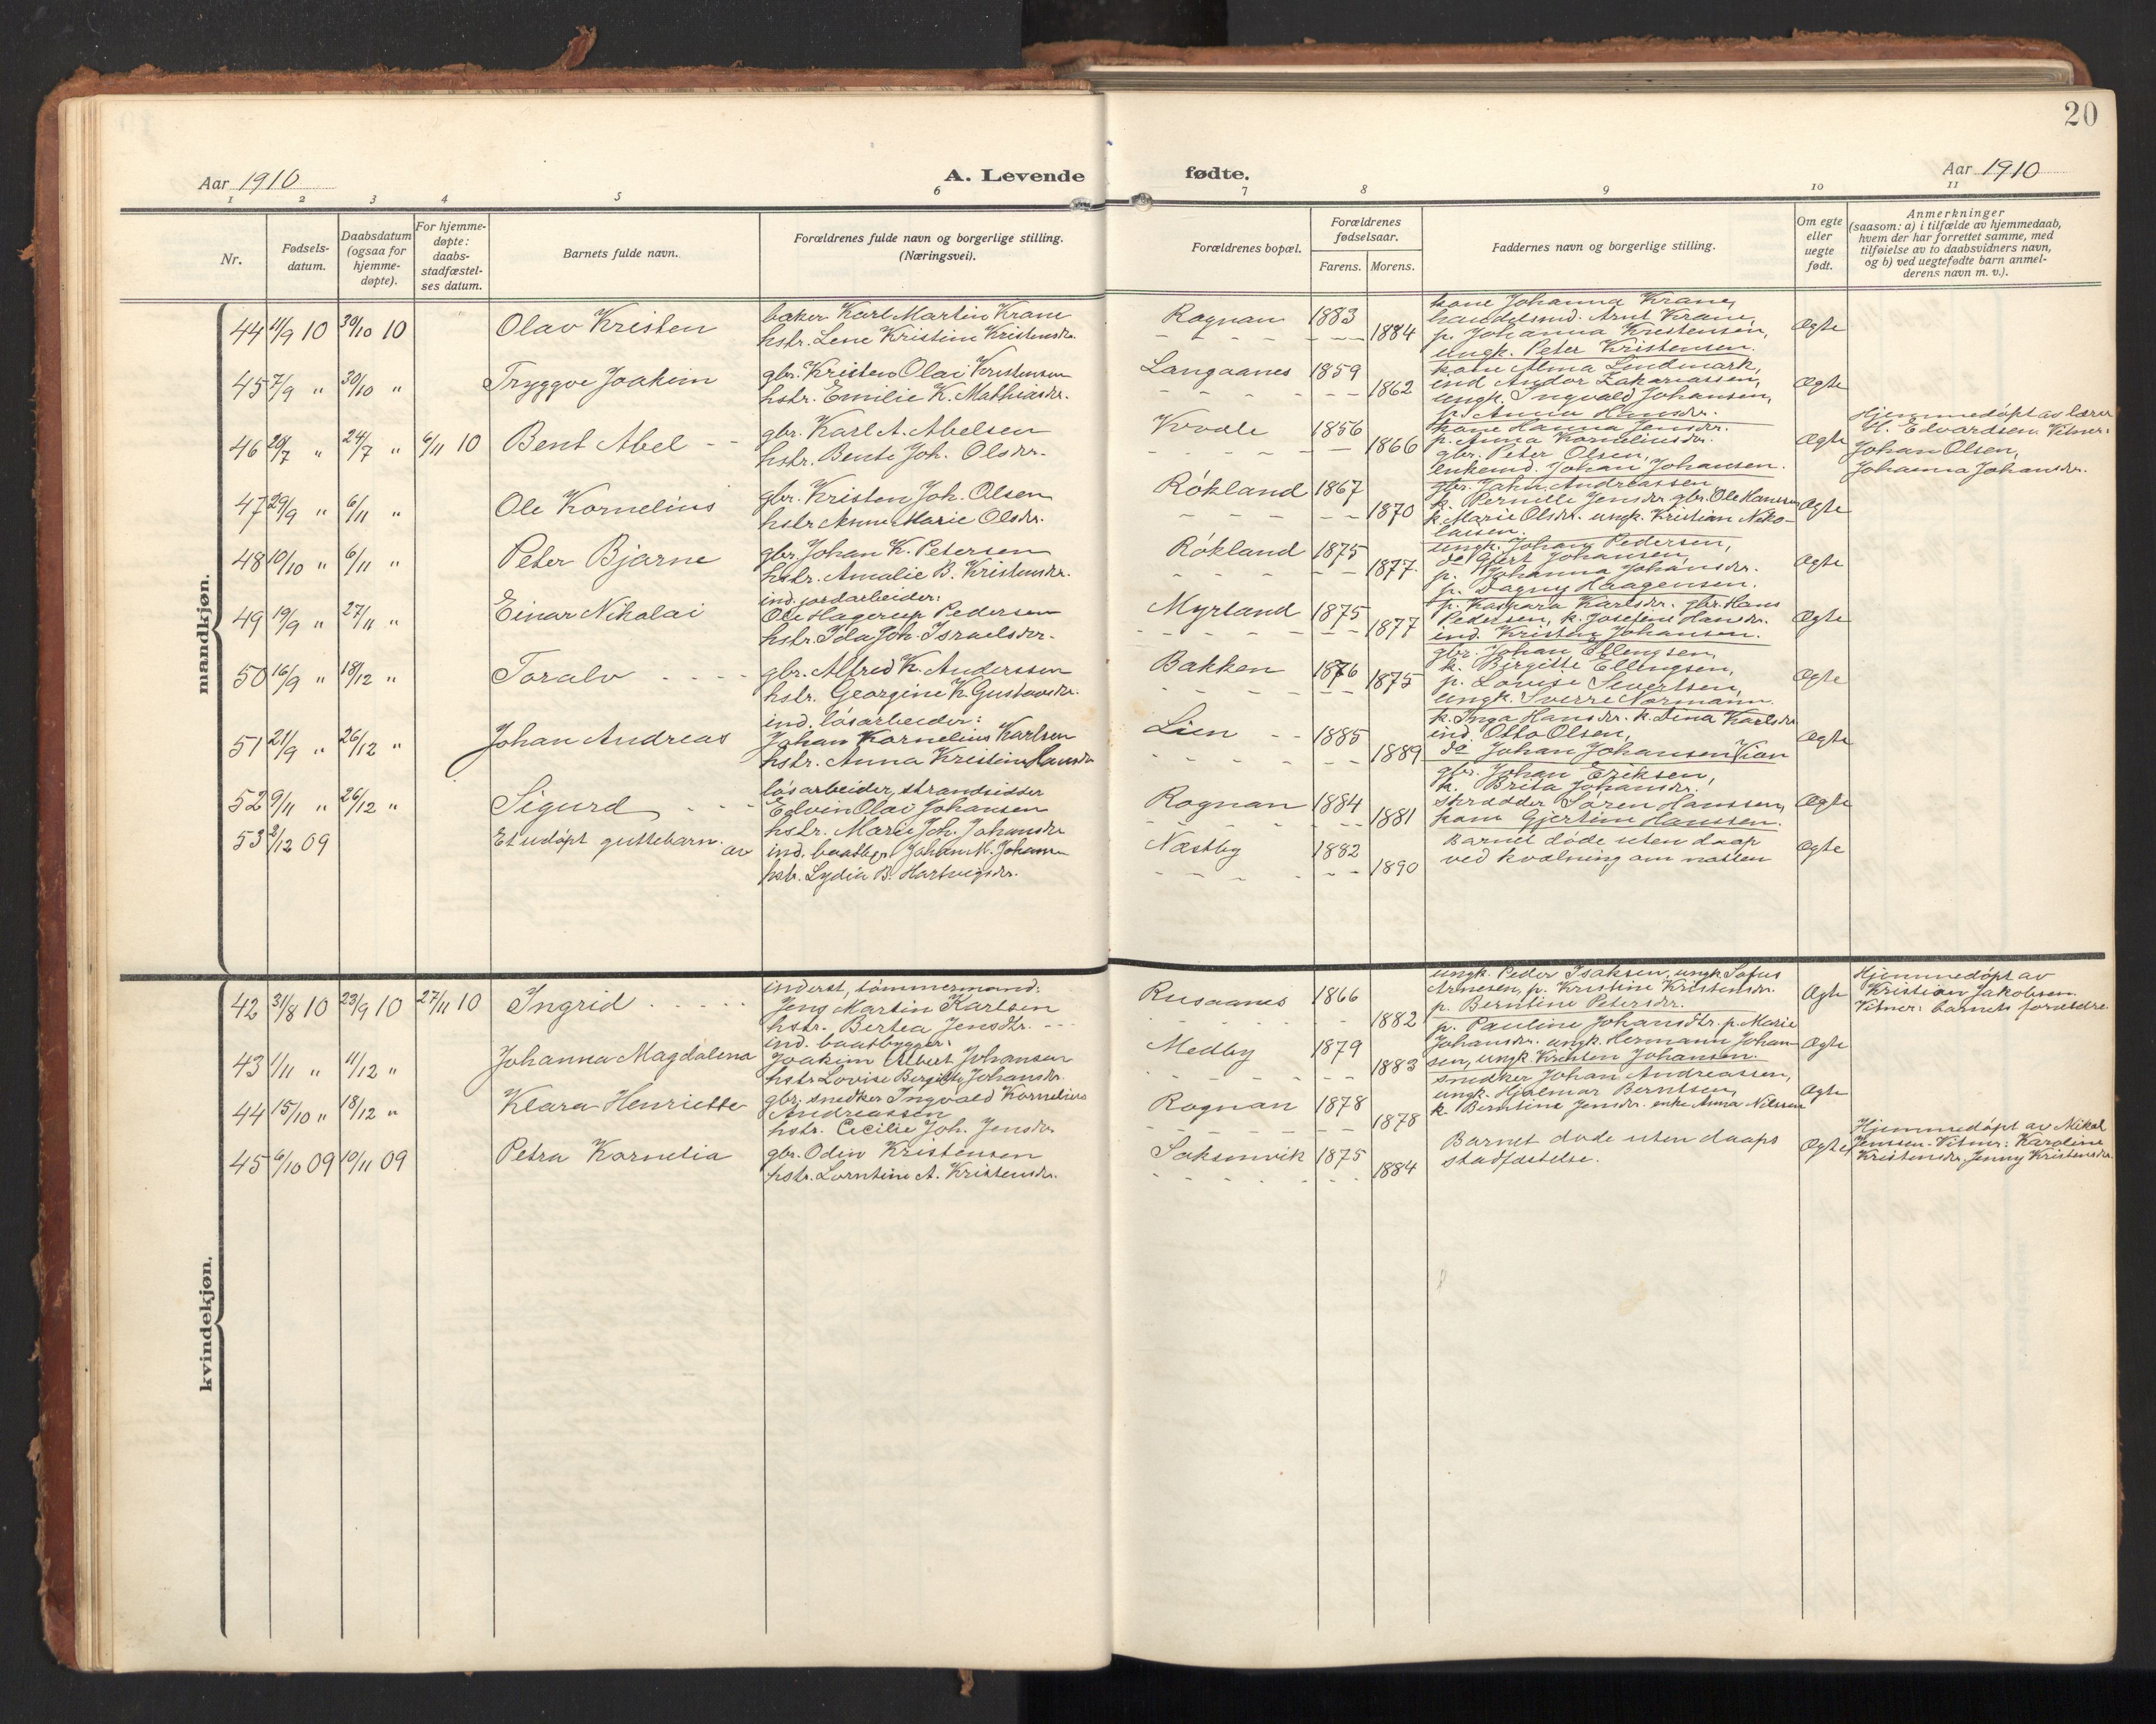 20
Aar 1910
A. Levende
fødte.
Aar 1910
1 2 3 4 5 6 7 8 9 10 11
Nr.
Fødsels-
datum.
Daabsdatum
(ogsaa for
hjemme-
døpte).
For hjemme-
døpte:
daabs-
stadfæstel-
ses datum.
Barnets fulde navn.
Forældrenes fulde navn og borgerlige stilling.
(Næringsvei).
Forældrenes bopæl.
Forældrenes
fødselsaar.
Farens. Morens.
Faddernes navn og borgerlige stilling.
Om egte
eller
uegte
født.
Anmerkninger
(saasom: a) i tilfælde av hjemmedaab,
hvem der har forrettet samme, med
tilføielse av to daabsvidners navn,
og b) ved uegtefødte barn anmel-
derens navn m. v.).
mandkjøn.
44 11/9 10 30/10 10 Olav Kristen
baker Karl Martin Krane
hstr. Lene Kristine Kristensdr.
Rognan 1883 1884
kone Johanna Krane,
handelsmd. Arnt Krane,
p. Johanna Kristensen,
ungk. Peter Kristensen.
Ægte
45 7/9 " 30/10 " Tryggve Joakim
gbr. Kristen Olai Kristensen
hstr. Emilie K. Mathiasdr.
Langaanes 1859 1862
kone Alma Lindmark,
ind Andor Zakariassen,
ungk. Ingvald Johansen,
p. Anna Hansdr.
Ægte
46 20/7 " 24/7 " 6/11 10 Bent Abel
gbr. Karl A. Abelsen
hstr. Bente Joh. Olsdr.
Kvale 1856 1866
kone Hanna Jensdr.
p. Anna Korneliusdr.
gbr. Peter Olsen,
enkemd. Johan Johansen.
Ægte
Hjemmedøpt av lærer
H. Edvardsen. Vitner:
Johan Olsen,
Johanna Johansdr.
47 29/9 " 6/11 " Ole Kornelius
gbr. Kristen Joh. Olsen
hstr Anne Marie Olsdr.
Røkland 1867 1870
gbr. Jahn Andreassen,
k. Pernille Jensdr gbr. Ole Hansen
k. Marie Olsdr. ungk. Kristian Niko-
laisen.
Ægte
48 10/10 " 6/11 " Peter Bjarne
gbr. Johan K. Petersen
hstr. Amalie B. Kristensdr.
Røkland 1875 1877.
ungk. Johan Pedersen,
do Gjert Johansen,
p. Johanna Johansdr.
p. Dagny Haagensen.
Ægte
49 19/9 " 27/11 " Einar Nikolai
ind. jordarbeider:
Ole Hagerup Pedersen
hstr. Ida Joh. Israelsdr.
Myrland 1875 1877
p. Kaspara Karlsdr. gbr. Hans
Pedersen, k. Josefine Hansdr.
ind. Kristen Johansen.
Ægte
50 16/9 " 18/12 " Toralv
gbr. Alfred K. Anderssen
hstr. Georgine K. Gustavsdr.
Bakken 1876 1875
gbr. Johan Ellengsen,
k. Birgitte Ellingsen,
p. Lovise Sivertsen,
ungk. Sverre Normann.
Ægte
51 21/9 " 26/12 " Johan Andreas
ind. løsarbeider:
Johan Kornelius Karlsen
hstr. Anna Kristine Hansdr
Lien 1885 1889
k. Inga Hansdr. k. Dina Karlsdr
ind. Otto Olsen,
do Johan Johansen Vian
Ægte
52 9/11 " 26/12 " Sigurd
løsarbeider, strandsidder
Edvin Olai Johansen
hstr. Marie Joh. Johansdr
Rognan 1884 1881
gbr. Johan Eriksen,
k. Brita Johansdr.
skrædder Søren Hanssen,
kone Gjertine Hanssen.
Ægte
53 2/12 09 Et udøpt guttebarn. av
ind. baatbygr. Johan M. Johansen
hstr. Lydia B. Hartvigsdr.
Næstby 1882 1890
Barnet døde uten daap
ved kvælning om natten
Ægte
kvindekjøn.
42 31/8 10 23/9 10 27/11 10 Ingrid
inderst, tømmermand:
Jens Martin Karlsen
hstr. Bertea Jensdtr.
Rusaanes 1866 1882
ungk. Peder Isaksen, ungk. Sofus
Arnesen, p. Kristine Kristensdr.
p. Berntine Petersdr.
Ægte
Hjemmedøpt av
Kristian Jakobsen.
Vitner: barnets forældre.
43 1/11 " 11/12 " Johanna Magdalena
ind. baatbygger:
Joakim Albert Johansen
hstr Lovise Bergitte Johansdr.
Medby 1879 1883
p. Pauline Johansdtr. p. Marie
Johansdr. ungk. Hermann Johan-
sen, ungk. Kristen Johansen.
Ægte
44 15/10 " 18/12 " Klara Henriette
gbr. snedker Ingvald Kornelius
Andreassen
hstr. Cecilie Joh. Jensdr
Rognan 1878 1878
snedker Johan Andreassen,
ungk. Hjalmar Berntsen,
k. Berntine Jensdr. enke Anna Nilssen
Ægte
45 6/10 09 10/11 09 Petra Kornelia
gbr. Odin Kristensen
hstr. Lorntine A. Kristensdr.
Saksenvik 1875 1884
Barnet døde uten daaps
stadfæstelse.
Ægte
Hjemmedøpt av Nikol
Jenssen. Vitner: Karoline
Kristensdr. Jenny Kristensdr.